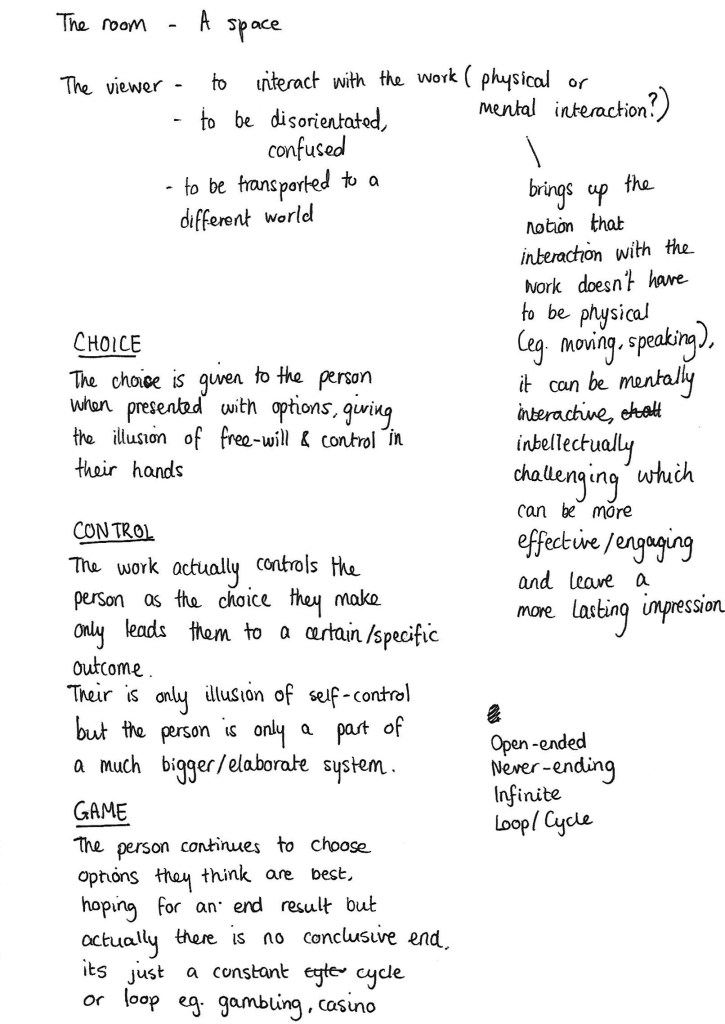 The room - A space
The viewer - to interact with the work (physical or
mental interaction?)
- to be disorientated,
confused
- to be transported to a
different world
brings up the
notion that
interaction with the
work doesn't have
to be physical
(eg. moving, speaking),
it can be mentally
interactive,
intellectually
challenging which
can be more
effective/engaging
and leave a
more lasting impression
CHOICE
The choice is given to the person
when presented with options, giving
the illusion of free-will & control in
their hands
CONTROL
The work actually controls the
person as the choice they make
only leads them to a certain/specific
outcome.
Their is only illusion of self-control
but the person is only a part of
a much bigger/elaborate system.
GAME
The person continues to choose
options they think are best,
hoping for an end result but
actually there is no conclusive end,
its just a constant cycle
or loop eg. gambling, casino
Open-ended
Never-ending
Infinite
Loop/Cycle